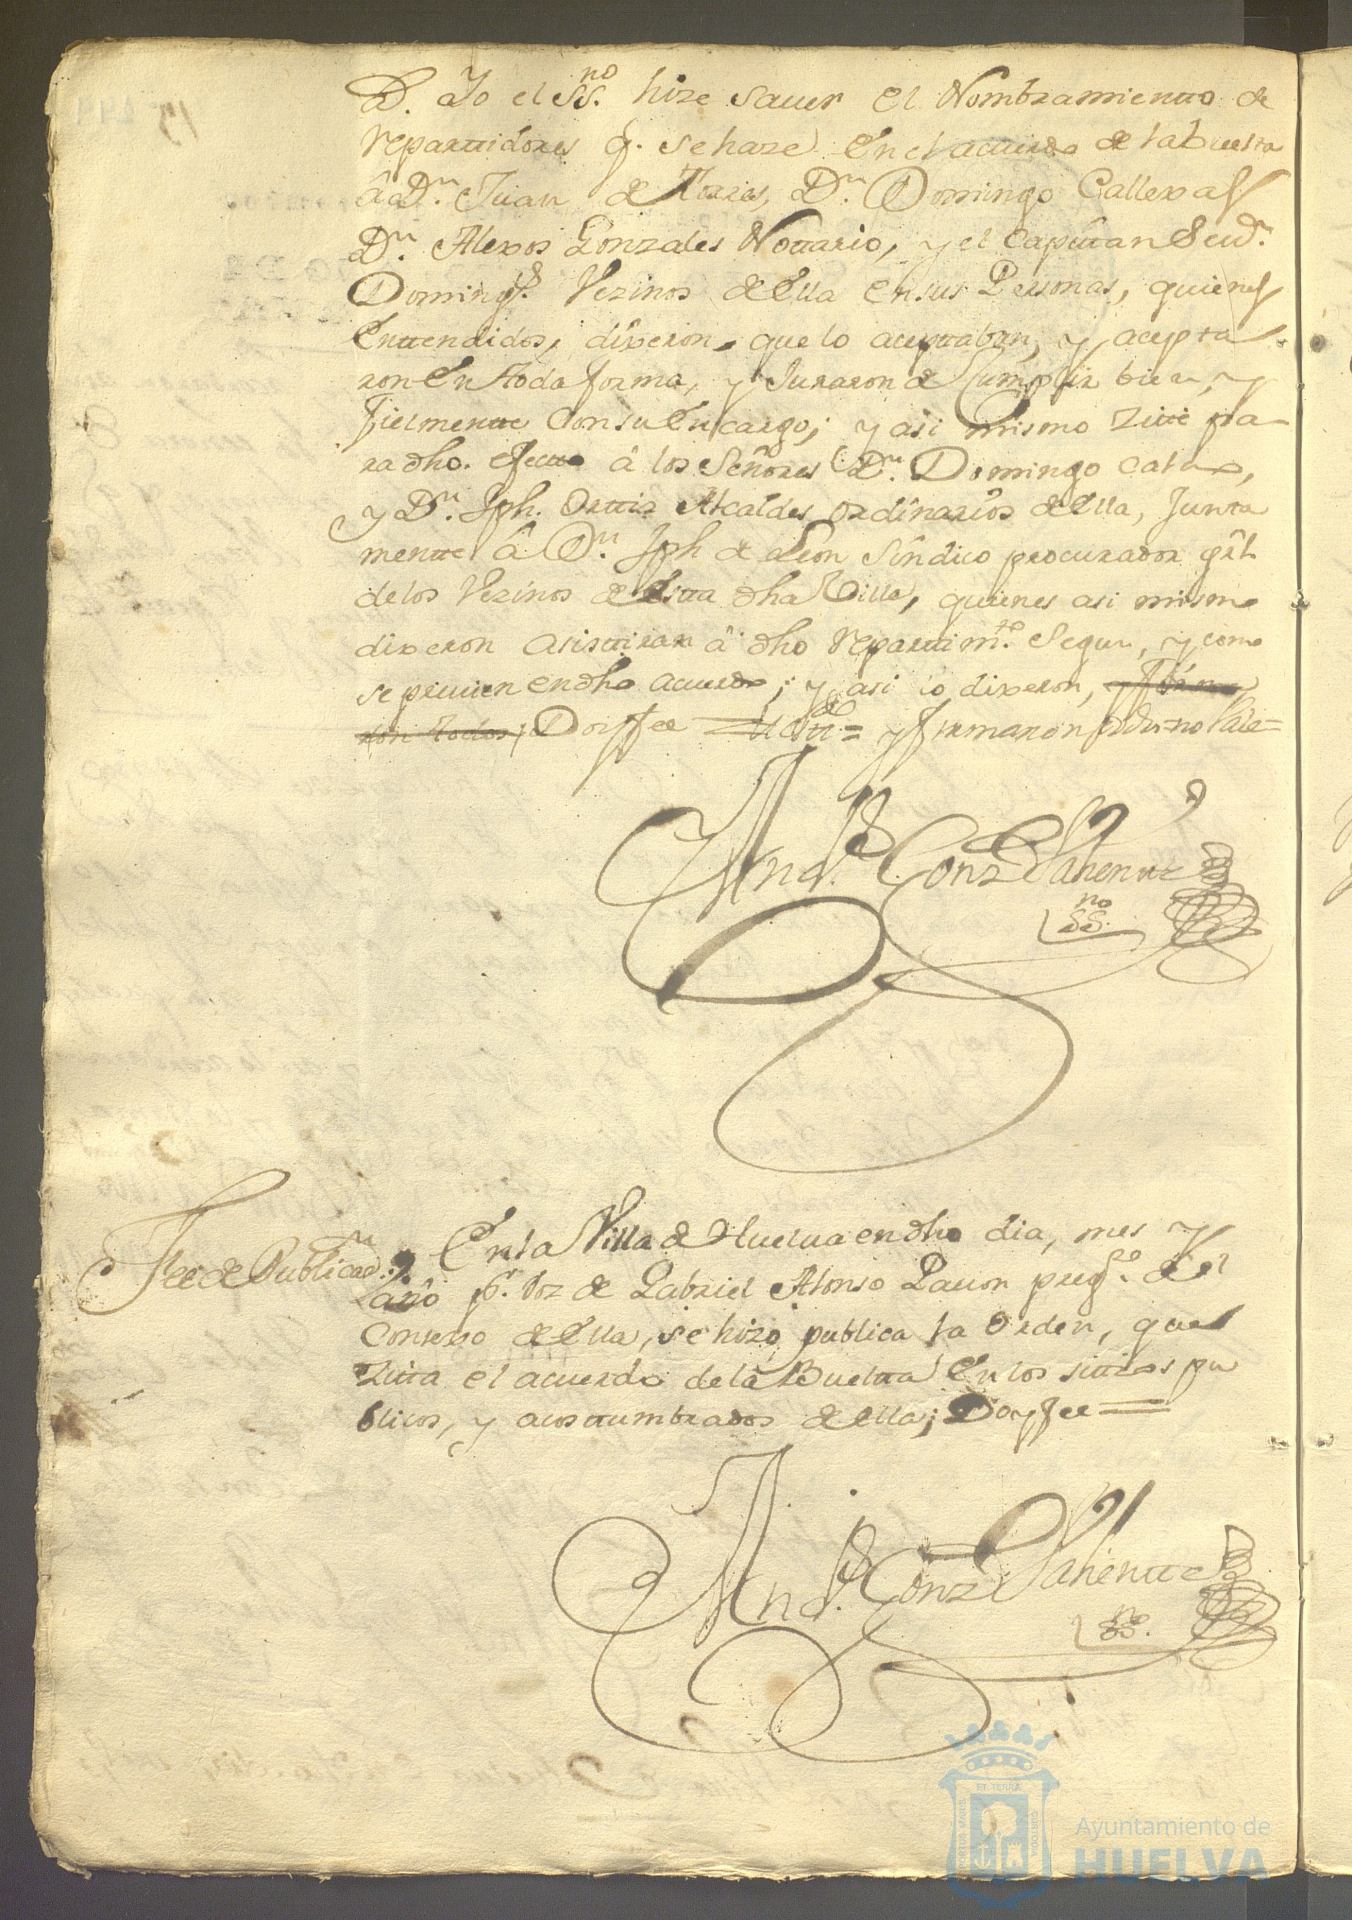 D. Yo el SSno. hize sauer el Nombramientto de
reparttidores q. se haze en el acuerdo de la buelta
â Dn. Juan de Dn. Domingo Callexas
Dn. Alexos Gonzales Nottario, y el Capitan
Doming. Vezinos de ella en sus Personas, quienes
enttendidos, dixeron que lo aceptaban, y acepta
ron en ttoda forma, y Juraron de Cumplir bien, y
fielmentte con su encargo; y asi mismo zitté pa-
ra dho. efectto â los Señores Dn. Domingo
y Dn. Jph. Orttiz Alcaldes ordinarios de ella, Junta
mentte â Dn. Jph de Leon Sindico procurador grâl
de los Vezinos de estta dha Villa, quienes asi mismo
dixeron asisttiran â dho reparttimto. segun, y como
se previen en dho acuerdo; y asi lo dixeron, y firma
ron todos; Doy fee = y firmaron = no Vale =
Andrs. Gonz Vahentte
SSno.
Fee de Publicacn. En la Villa de Huelua en dho dia, mes y
año pr. voz de Gabriel Alonso Pauon pregro. de el
Consexo de ella, se hizo publica la orden, que
zitta el acuerdo de la Bueltta en los sittios pu
blicos, y acosttumbrados de ella; Doy fee =
Andrs. Gonz Vahentte
SSno.
ET TERRÆ
PORTUS MARIS
CUSTODIA
Ayuntamiento de
HUELVA